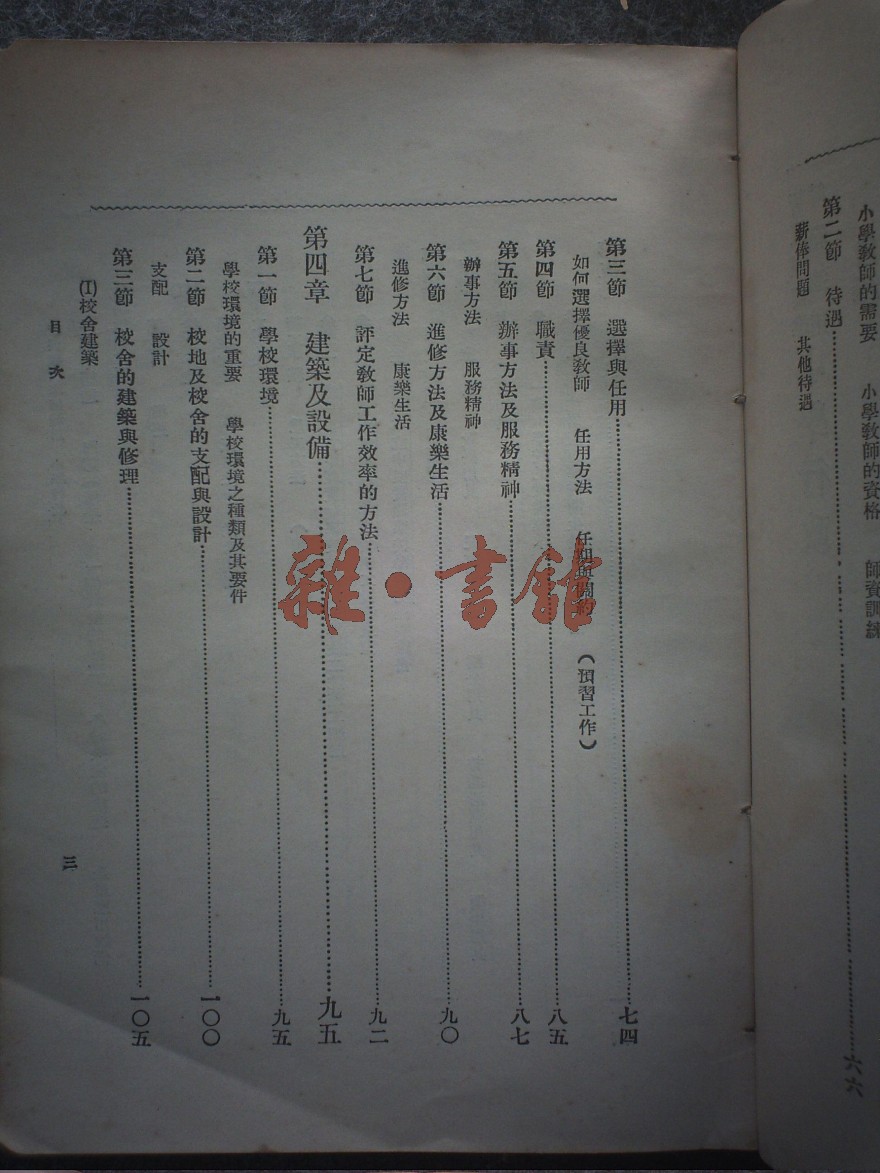 小學教師的需要　小學教師的資格　師資訓練
第二節　待遇……六六
薪俸問題　其他待遇
第三節　選擇與任用……七四
如何選擇優良教師　任用方法　（預習工作）
第四節　職責……八五
第五節　辦事方法及服務精神……八七
辦事方法　服務精神
第六節　進修方法及康樂生活……九〇
進修方法　康樂生活
第七節　評定教師工作效率的方法……九二
第四章　建築及設備……九五
第一節　學校環境……九五
學校環境的重要　學校環境之種類及其要件
第二節　校地及校舍的支配與設計……一〇〇
支配　設計
第三節　校舍的建築與修理……一〇五
(I)校舍建築
目次
三
雜·書館